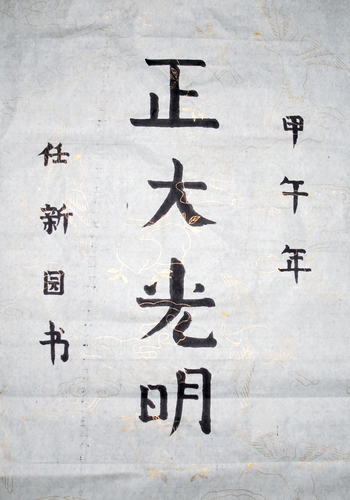 甲午年
正大光明
任新园书